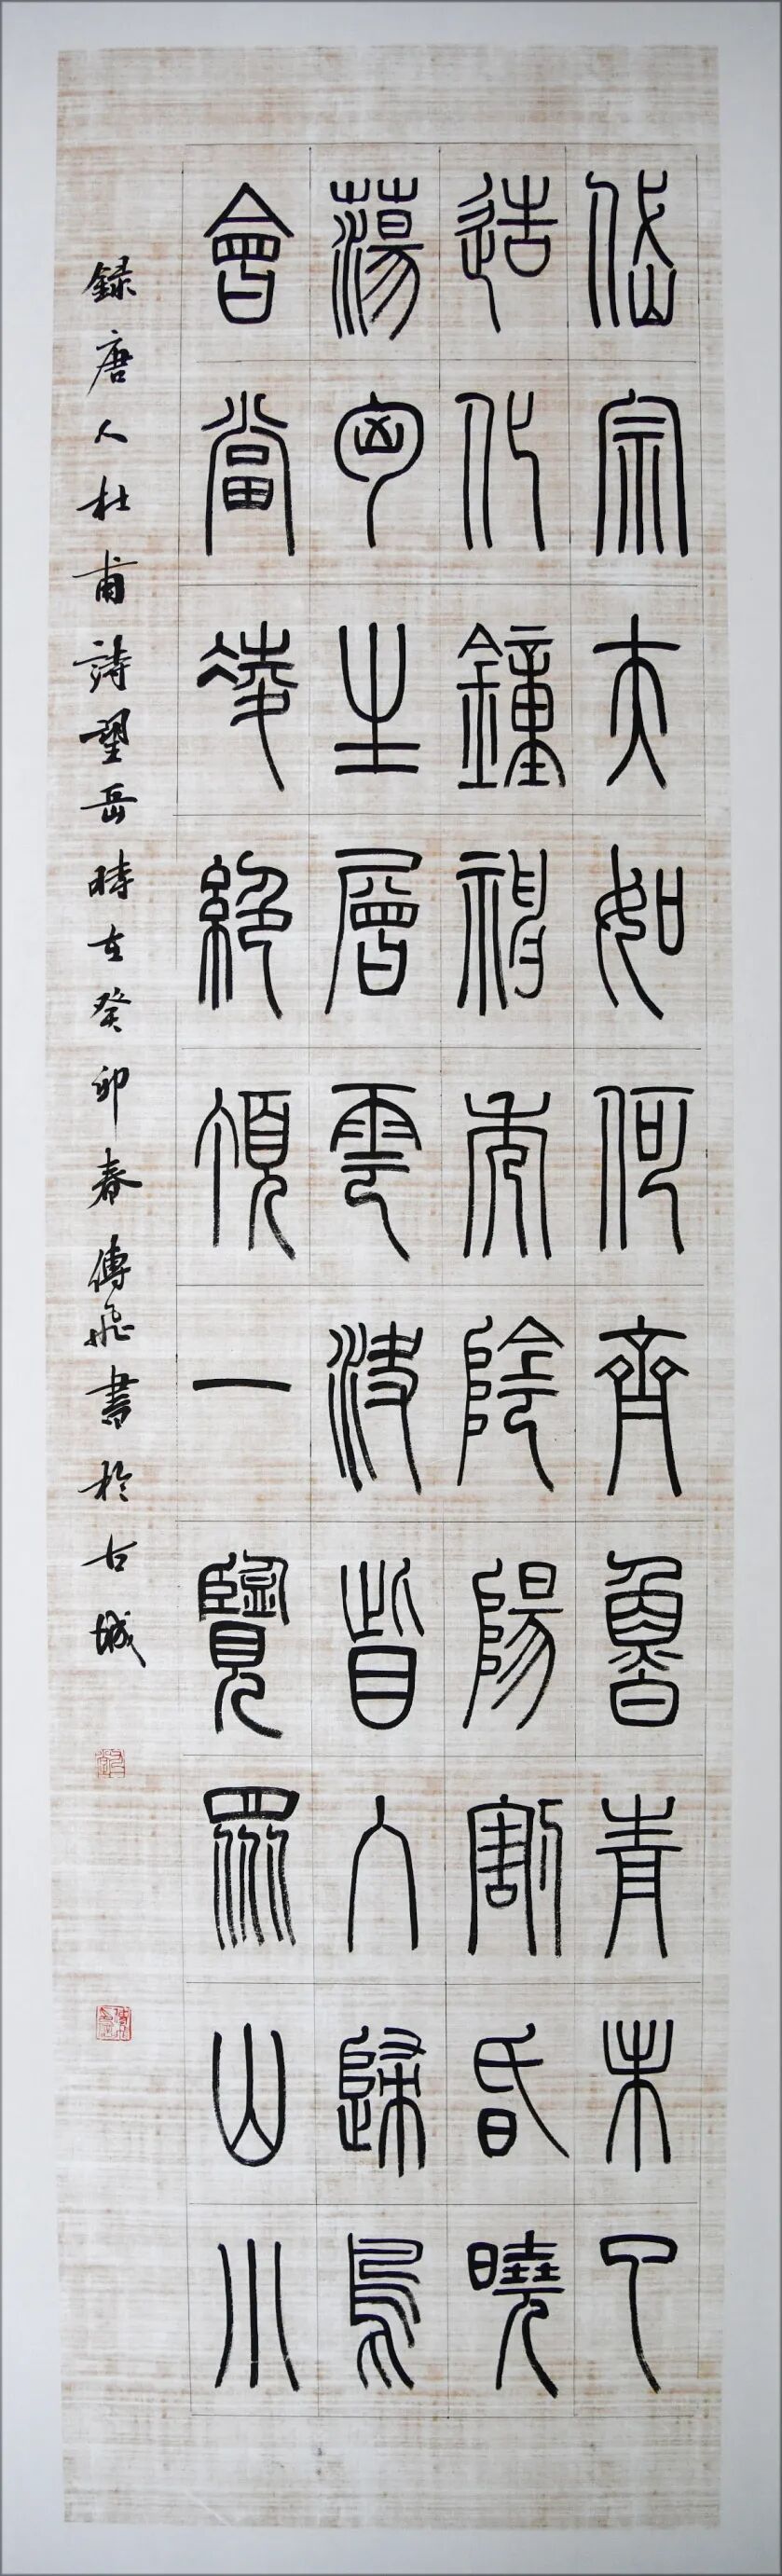 岱宗夫如何齊魯青未了
造化鐘神秀陰陽割昏曉
蕩匈生層雲決眥入歸鳥
會當凌絕頂一覽眾山小
録唐人杜甫詩望岳時在癸卯春傅飛書於古城